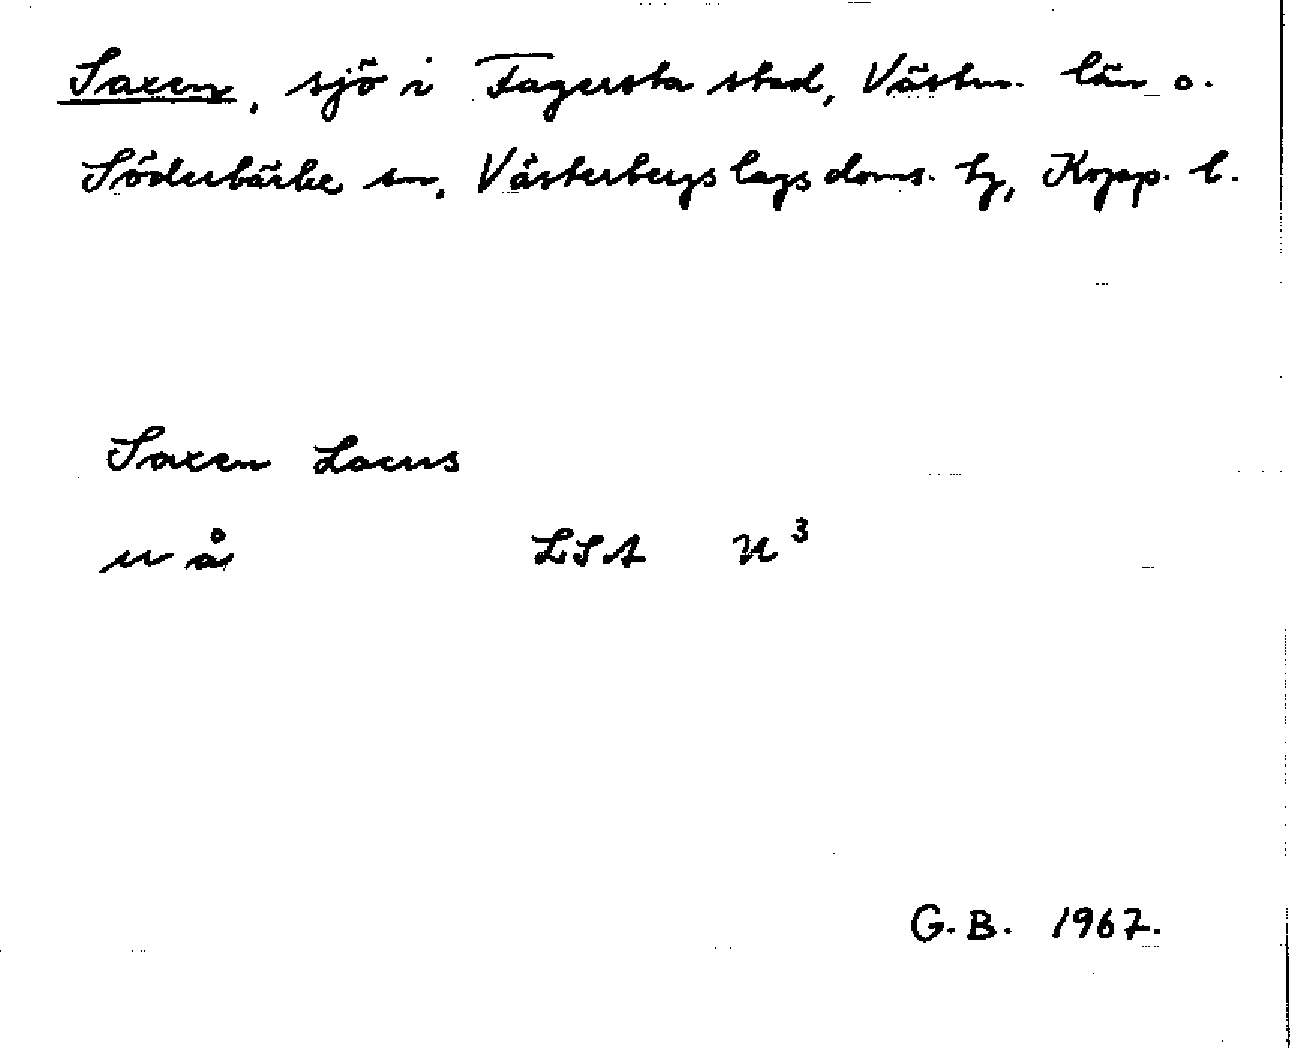 Saxen, sjö i Fagersta stad, Västm. län o.
Söderbärke sn, Västerbergslags doms. tg, Kopp. l.
Saxen Lacus
u å LSA U³
G.B. 1967.